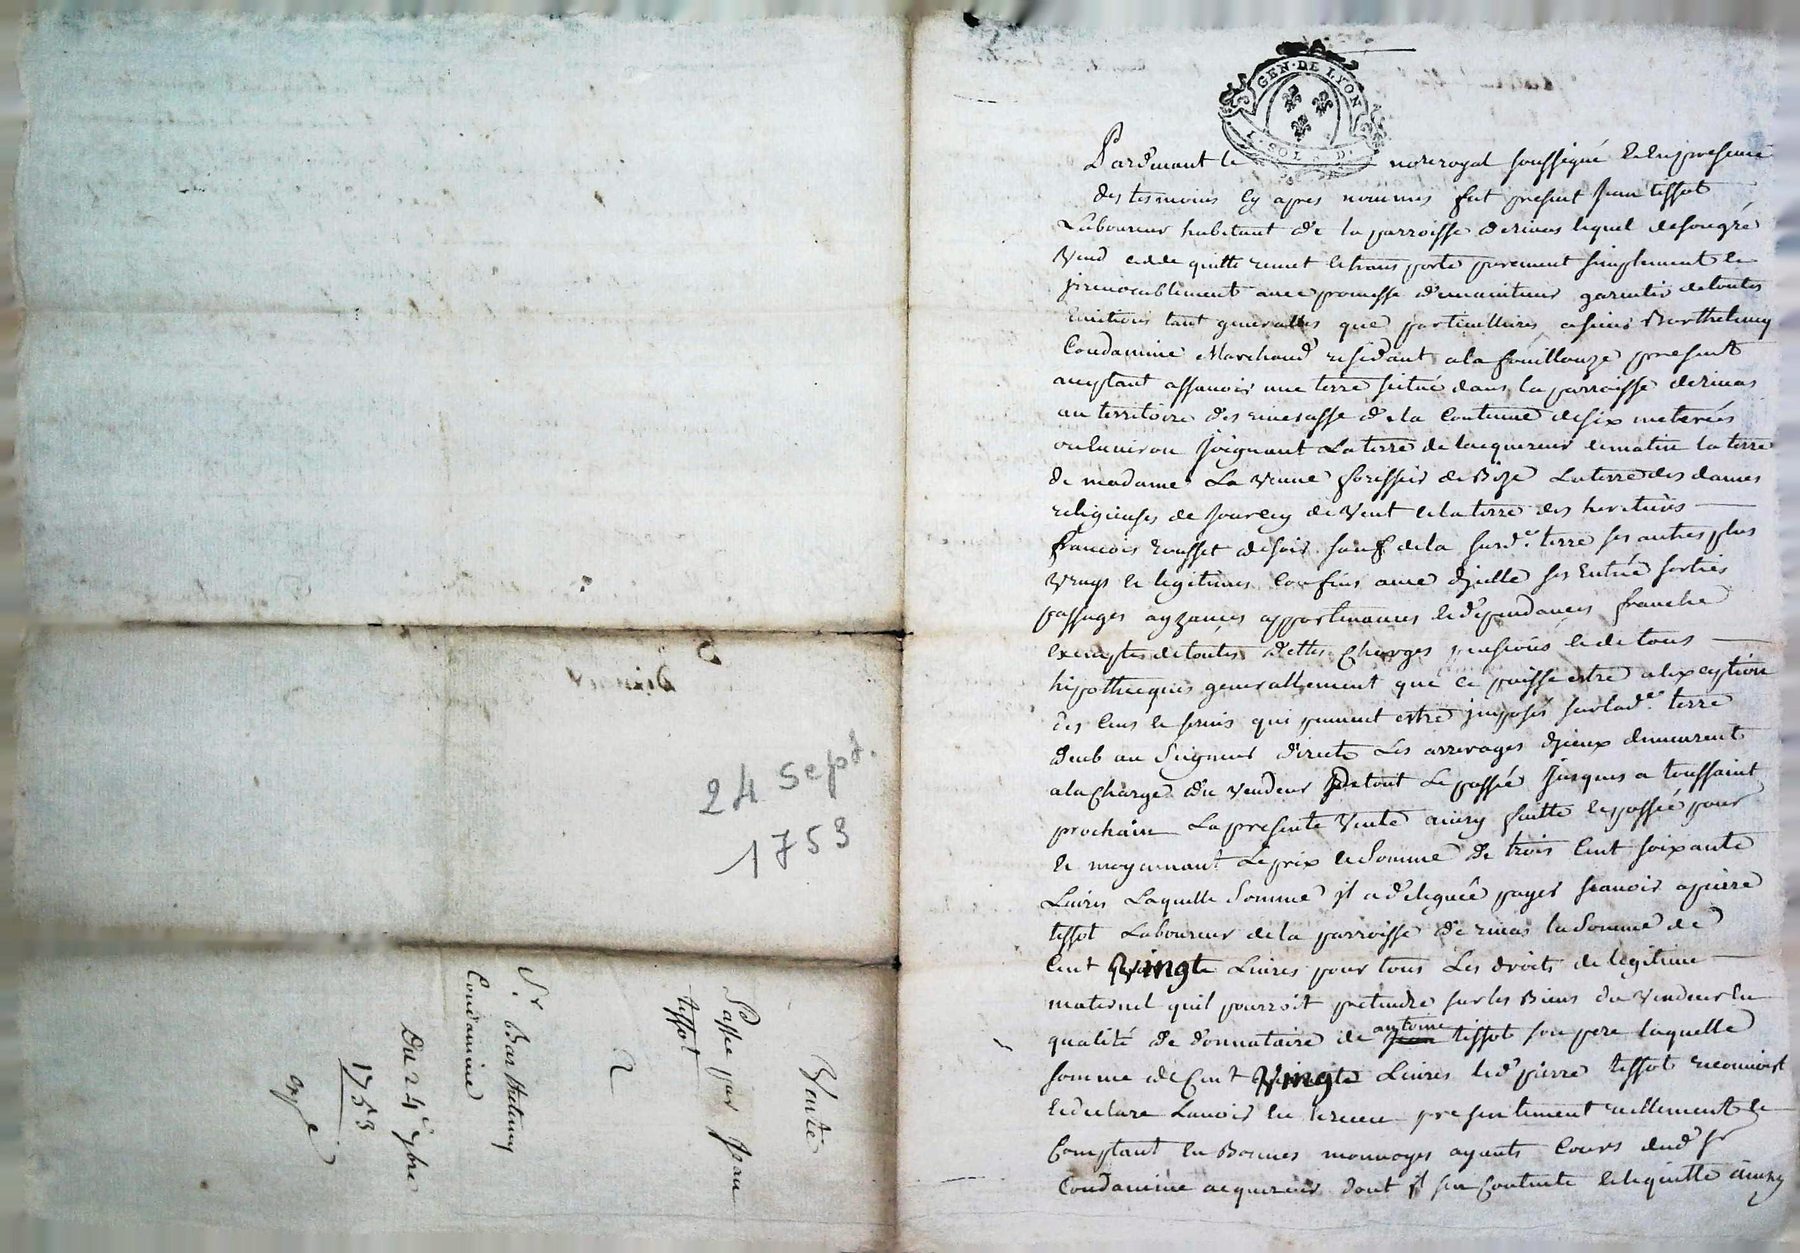 24 sept.
1753
Vente
Passée par Jean
tissot
2
Sr. Barthelemy
Condamine
Du 24e 7bre
1753
GEN · DE LYON
1 · SOL · D ·
Pardevant le notre royal soussigné et en presence
des tesmoins cy apres nommes fut present Jean tissot
Laboureur habitant de la parroisse de rivas lequel de son gré
Vend cedde quitte remet et transporte purement simplement et
jrrevocablement avec promesse de maintenir garentir de toutes
Evictions tant generalles que particullieres a sieur Barthelemy
Condamine Marchand residant a la fouillouze present
aceptant assavoir une terre scitué dans la parroisse de rivas
au territoire des de la Contenue de six meterées
ou environ Joignant La terre de lacquereur de matin la terre
de madame La Veuve de Bize La terre des dames
religieuses de Jourcey de Vent et la terre des heritiers
francois rousset de soir sauf de la susd.e terre ses autres plus
Vrays et legitimes Confins avec djcelle ses Entrée sorties
passages ayzances appartenances et dependances franche
Exempte de toutes dettes Charges pensions et de tous
hipothecques generallement que ce puisse estre a lexception
des Cens et servis qui peuvent estre jmposés sur lad.e terre
deub au Seigneur directe Les arrerages djceux demeurent
a la Charge du Vendeur de tout Le passée Jusques a toussaint
prochain La presente Vente ainsy faitte et passée pour
et moyennant Le prix et Somme de trois Cent soixante
Livres Laquelle Somme jl a deleguée payer scavoir a pierre
tissot Laboureur de la parroisse de rivas la Somme de
Cent Vingt Livres pour tous Les droits de legitime
maternel quil pourroit pretendre sur les Biens du Vendeur En
qualité de donnataire de antoine tissot son pere laquelle
somme de Cent Vingt Livres led pierre tissot reconnoist
et declare Lavoir Eu et receu presentement reellement et
Comptant En Bonnes monnoyes ayants Cours dud sr
Condamine acquereur dont jl se Contente et le quitte ainsy